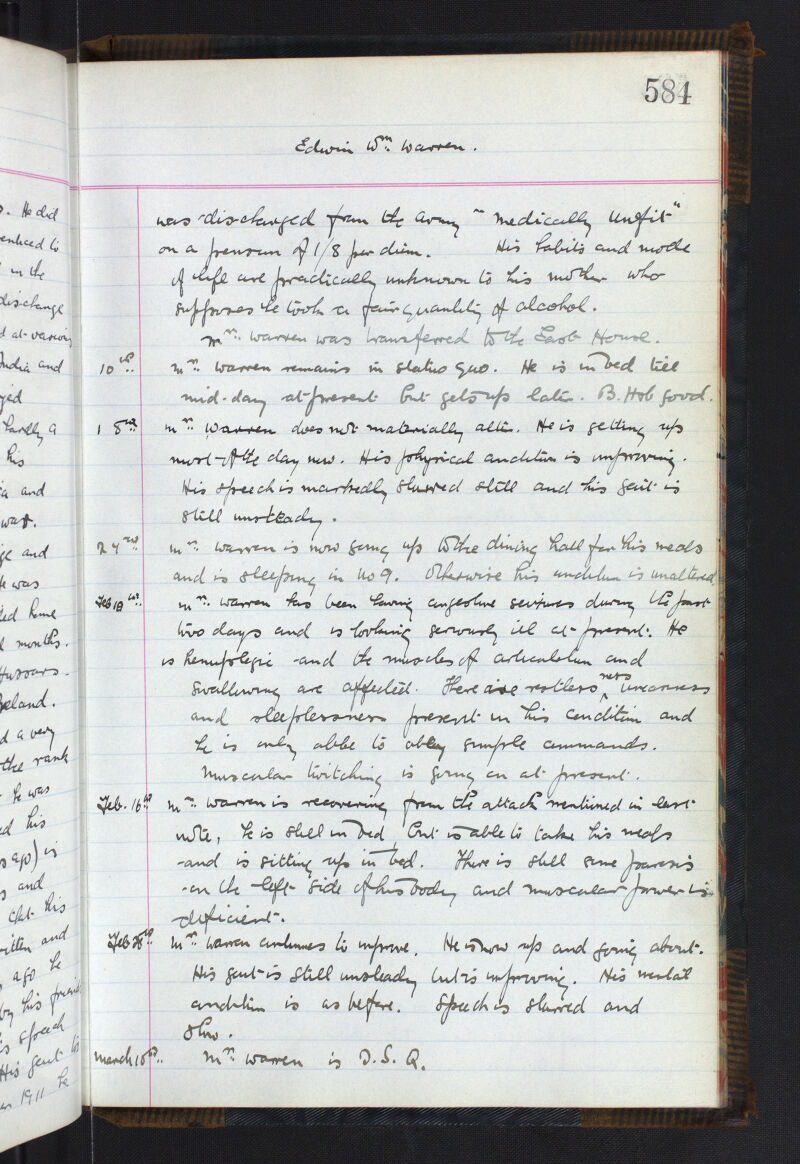 584
Edwin Wm. Warren.
was discharged from the army "medically unfit"
on a pension of 1/8 per diem. His habits and mode
of life are practically unknown to his mother who
supposes he took a fair quantity of alcohol.
Mr. Warren was transferred to the East House.
10th Mr. Warren remains in statuo quo. He is in bed till
mid-day at present but gets up later. B. Hth good.
Mr. Warren does not materially alter. He is getting up
most of the day now. His physical condition is improving.
His speech is markedly slurred still and his gait is
still unsteady.
Mr. Warren is now going up to the dining hall for his meals
and is sleeping in No 9. Otherwise his condition is unaltered
Feb Mr. Warren has been having congestive seizures during the past
two days and is looking seriously ill at present. He
is hemiplegic and the muscles of articulation and
swallowing are affected. There is restlessness
and sleeplessness present in his condition and
he is only able to obey simple commands.
Muscular twitching is going on at present.
Feb. 16th Mr. Warren is recovering from the attack mentioned in last
note, he is still in bed, but is able to take his meals
and is sitting up in bed. There is still some paresis
on the left side of his body and muscular power is
deficient.
Feb 28th Mr. Warren continues to improve. He is now up and going about.
His gait is still unsteady but is improving. His mental
condition is as before. Speech is slurred and
slow.
March Mr. Warren is D.S.Q.
He did
in the
discharge
d at various
India and
hardly a
his
and
was.
and
He was
home
months.
Hussars.
Ireland.
d a very
the rank
he was
his
ago) is
and
his
written and
ago he
by his friends
speech
His gait is
1911 he